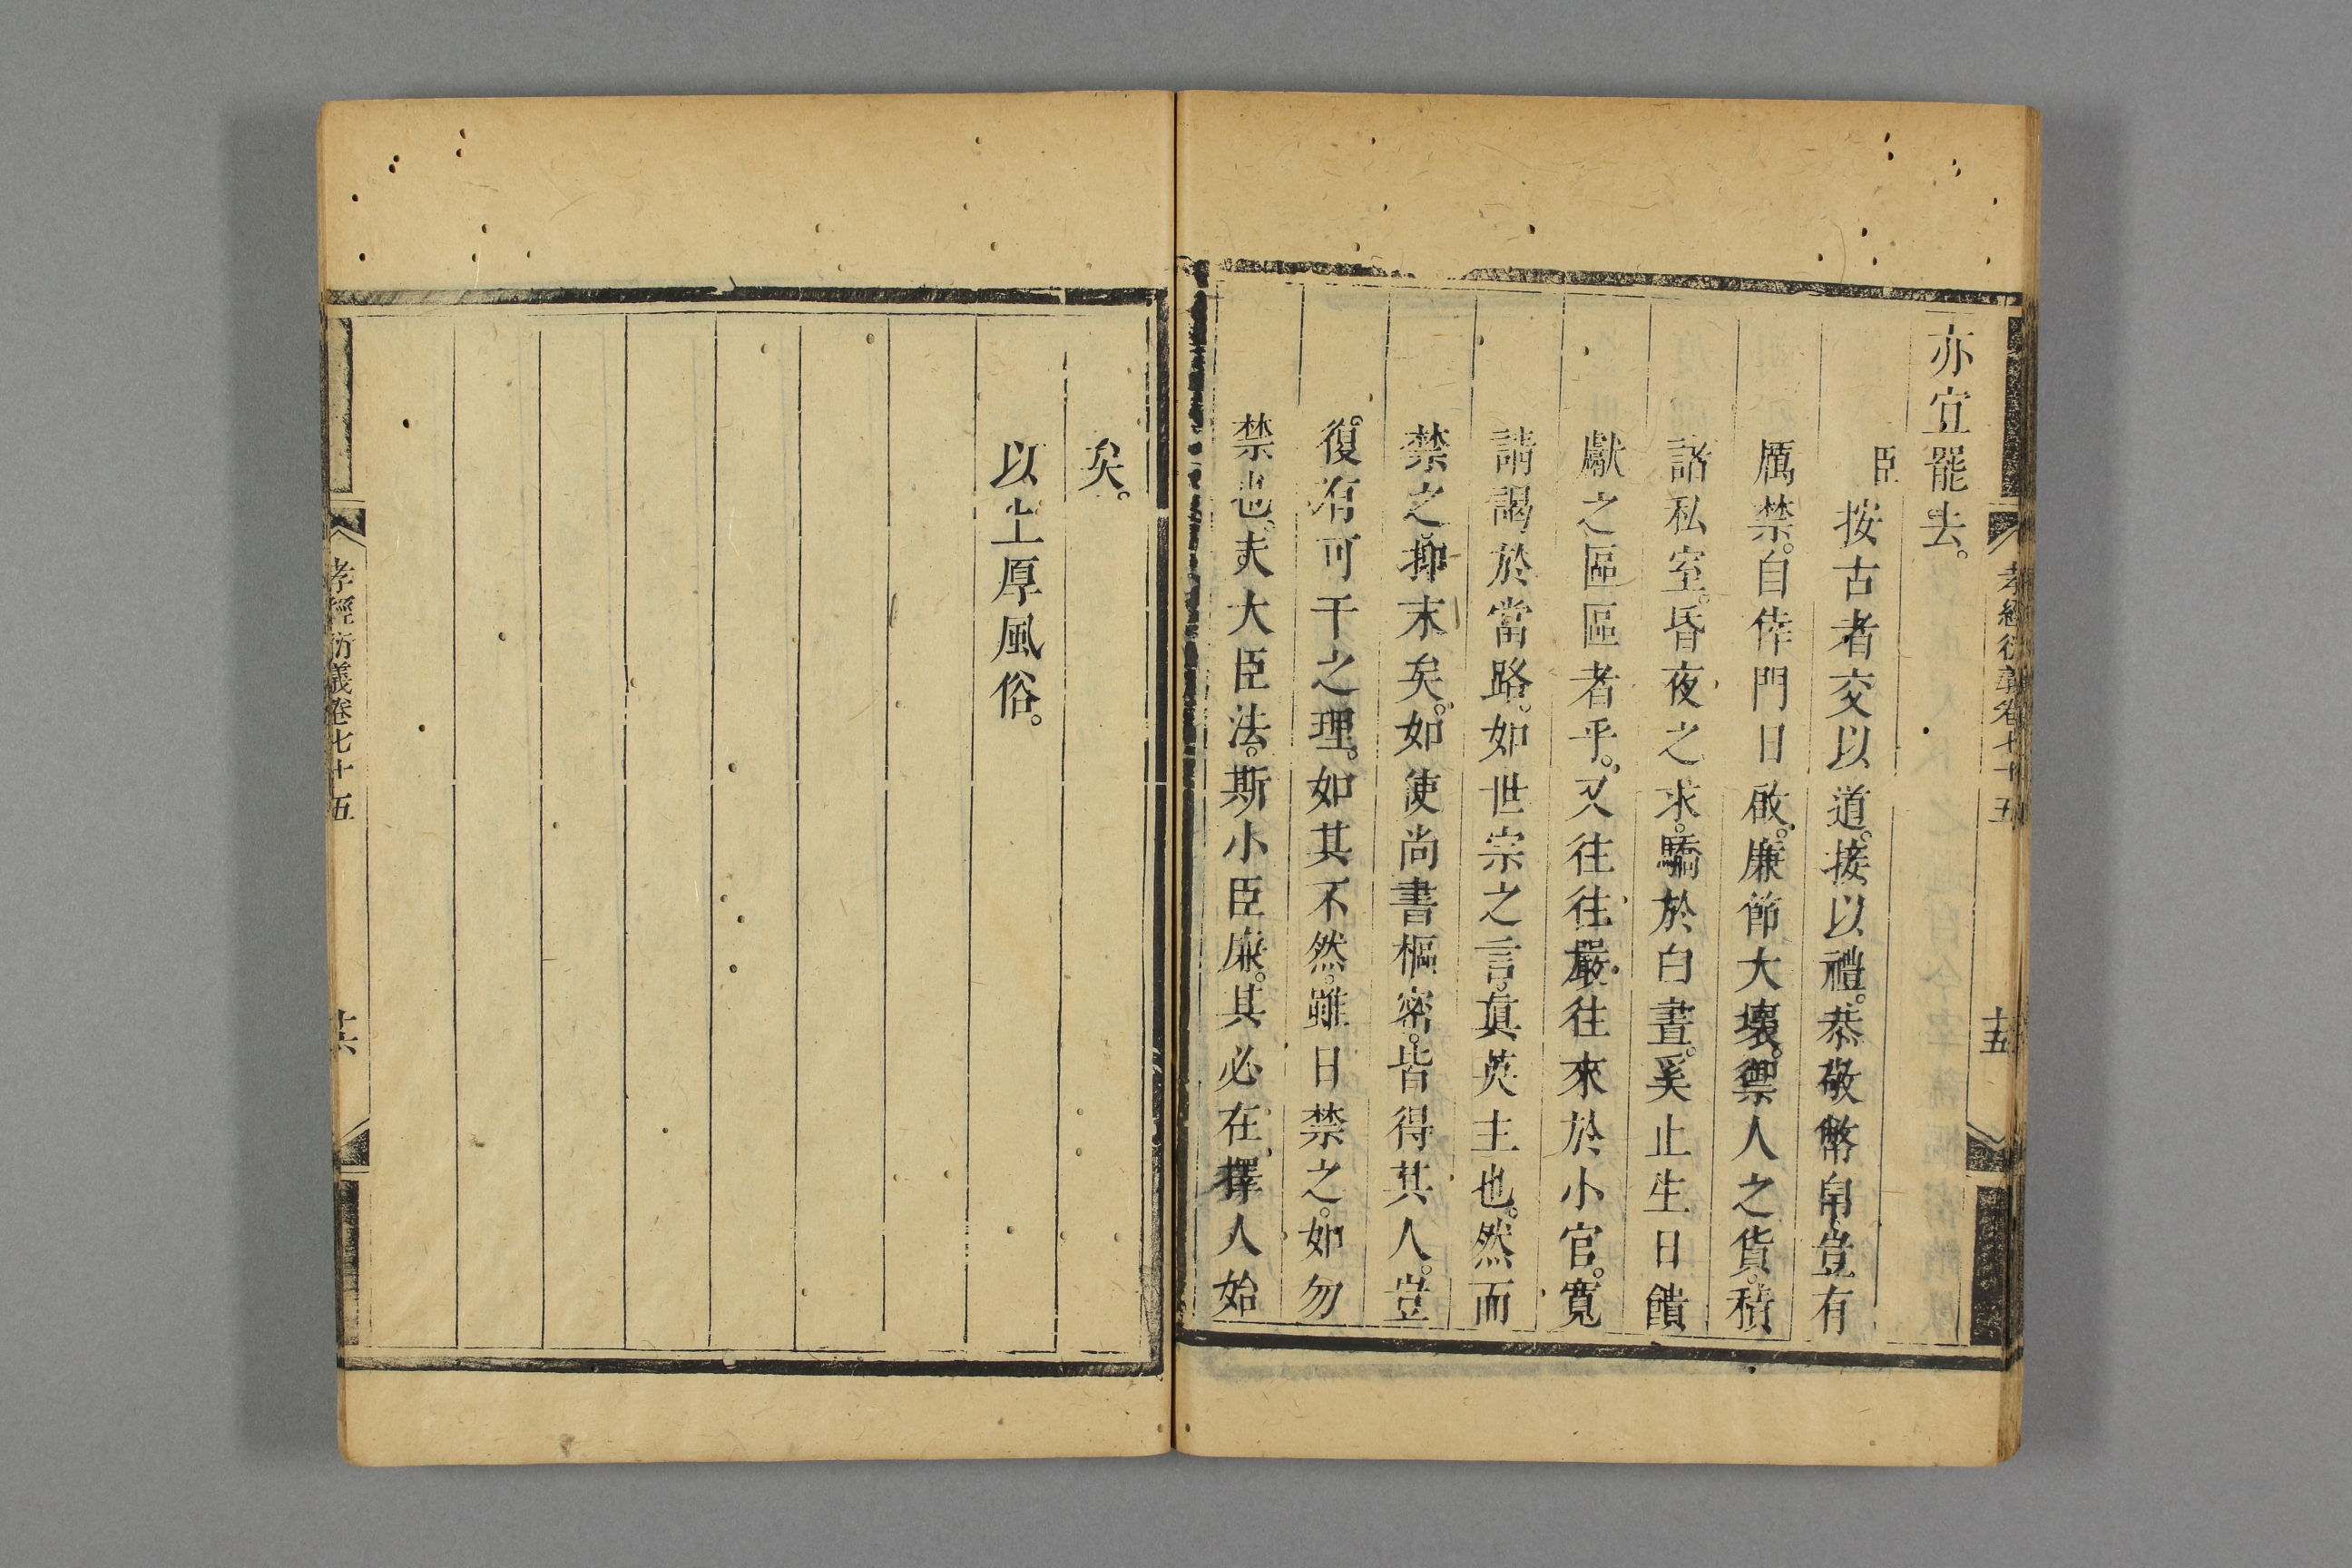 孝經衍義卷七十五
十五
亦宜罷去。
臣按古者交以道。接以禮。恭敬幣帛。豈有
厲禁。自倖門日啟。廉節大壞。禦人之貨。積
諸私室。昏夜之求。驕於白晝。奚止生日饋
獻之區區者乎。又往往嚴往來於小官。寬
請謁於當路。如世宗之言。眞英主也。然而
禁之。抑末矣。如使尚書樞密。皆得其人。豈
復有可干之理。如其不然。雖日禁之。如勿
禁也。夫大臣法。斯小臣廉。其必在擇人始
矣。
以上厚風俗。
孝經衍義卷七十五
十六